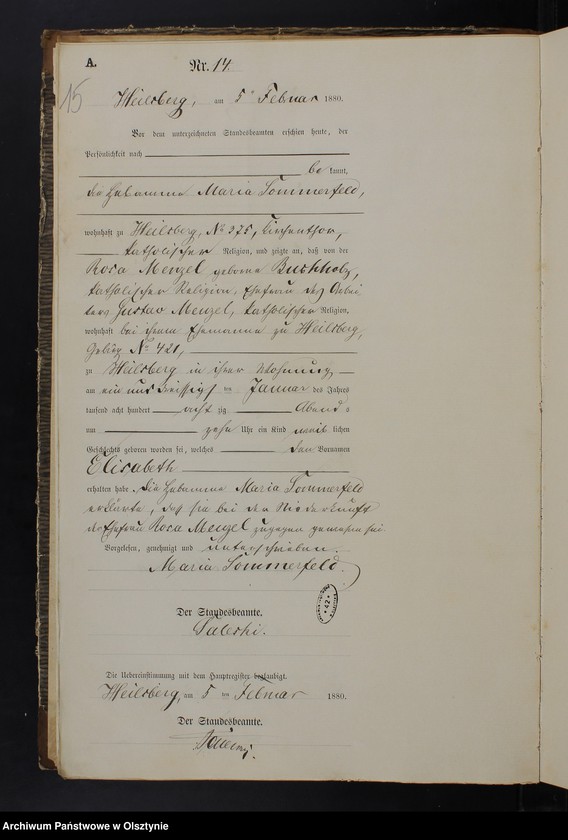 A.
Nr. 14.
15
Heilsberg, am 5 Februar 1880.
Vor dem unterzeichneten Standesbeamten erschien heute, der
Persönlichkeit nach
be kannt,
die Hebamme Maria Sommerfeld,
wohnhaft zu Heilsberg, No 275, Kirchenthor,
katholischer Religion, und zeigte an, daß von der
Rosa Menzel geborne Buchholz,
katholischer Religion, Ehefrau des Arbei
ters Gustav Menzel, katholischer Religion,
wohnhaft bei ihrem Ehemanne zu Heilsberg,
No 421,
zu Heilsberg in ihrer Wohnung
am ein und dreissigsten Januar des Jahres
tausend acht hundert acht zig Abends
um zehn Uhr ein Kind weib lichen
Geschlechts geboren worden sei, welches den Vornamen
Elisabeth
erhalten habe. Die Hebamme Maria Sommerfeld
erklärte, daß sie bei der Niederkunft
der Ehefrau Rosa Menzel zugegen gewesen sei.
Vorgelesen, genehmigt und unterschrieben.
Maria Sommerfeld.
Der Standesbeamte.
42
Die Uebereinstimmung mit dem Hauptregister beglaubigt.
Heilsberg, am 5 ten Februar 1880.
Der Standesbeamte.
Archiwum Państwowe w Olsztynie